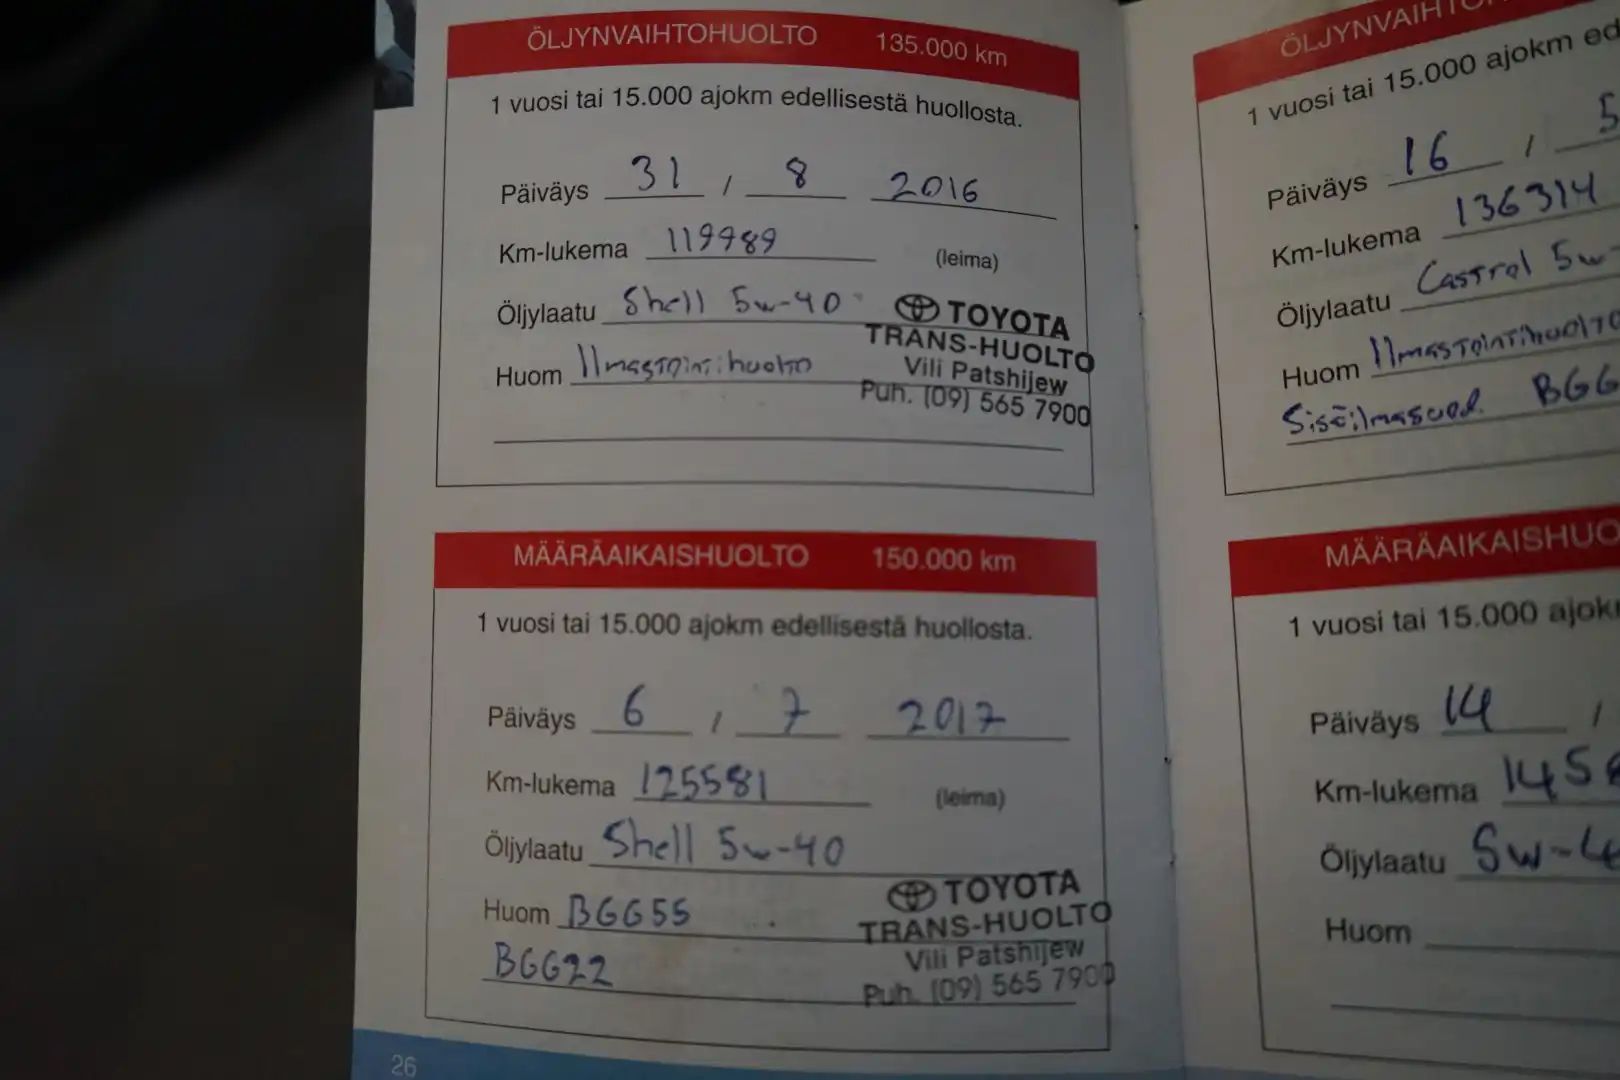 ÖLJYNVAIHTOHUOLTO 135.000 km
1 vuosi tai 15.000 ajokm edellisestä huollosta.
Päiväys 31 / 8 2016
Km-lukema 119989
(leima)
Öljylaatu Shell 5w-40
Huom Ilmastointihuolto
TOYOTA
TRANS-HUOLTO
Vili Patshijew
Puh. (09) 565 7900
MÄÄRÄAIKAISHUOLTO 150.000 km
1 vuosi tai 15.000 ajokm edellisestä huollosta.
Päiväys 6 / 7 2017
Km-lukema 125581
(leima)
Öljylaatu Shell 5w-40
Huom BGG55
BGG22
TOYOTA
TRANS-HUOLTO
Vili Patshijew
Puh. (09) 565 7900
26
1 vuosi tai 15.000 ajokm
Päiväys 16 / 5
Km-lukema 136314
Öljylaatu Castrol 5w-
Huom Ilmastointihuolto
Sisäilmasuod. BGG
MÄÄRÄAIKAISHUO
1 vuosi tai 15.000
Päiväys 14 /
Km-lukema 145
Öljylaatu 5w-4
Huom